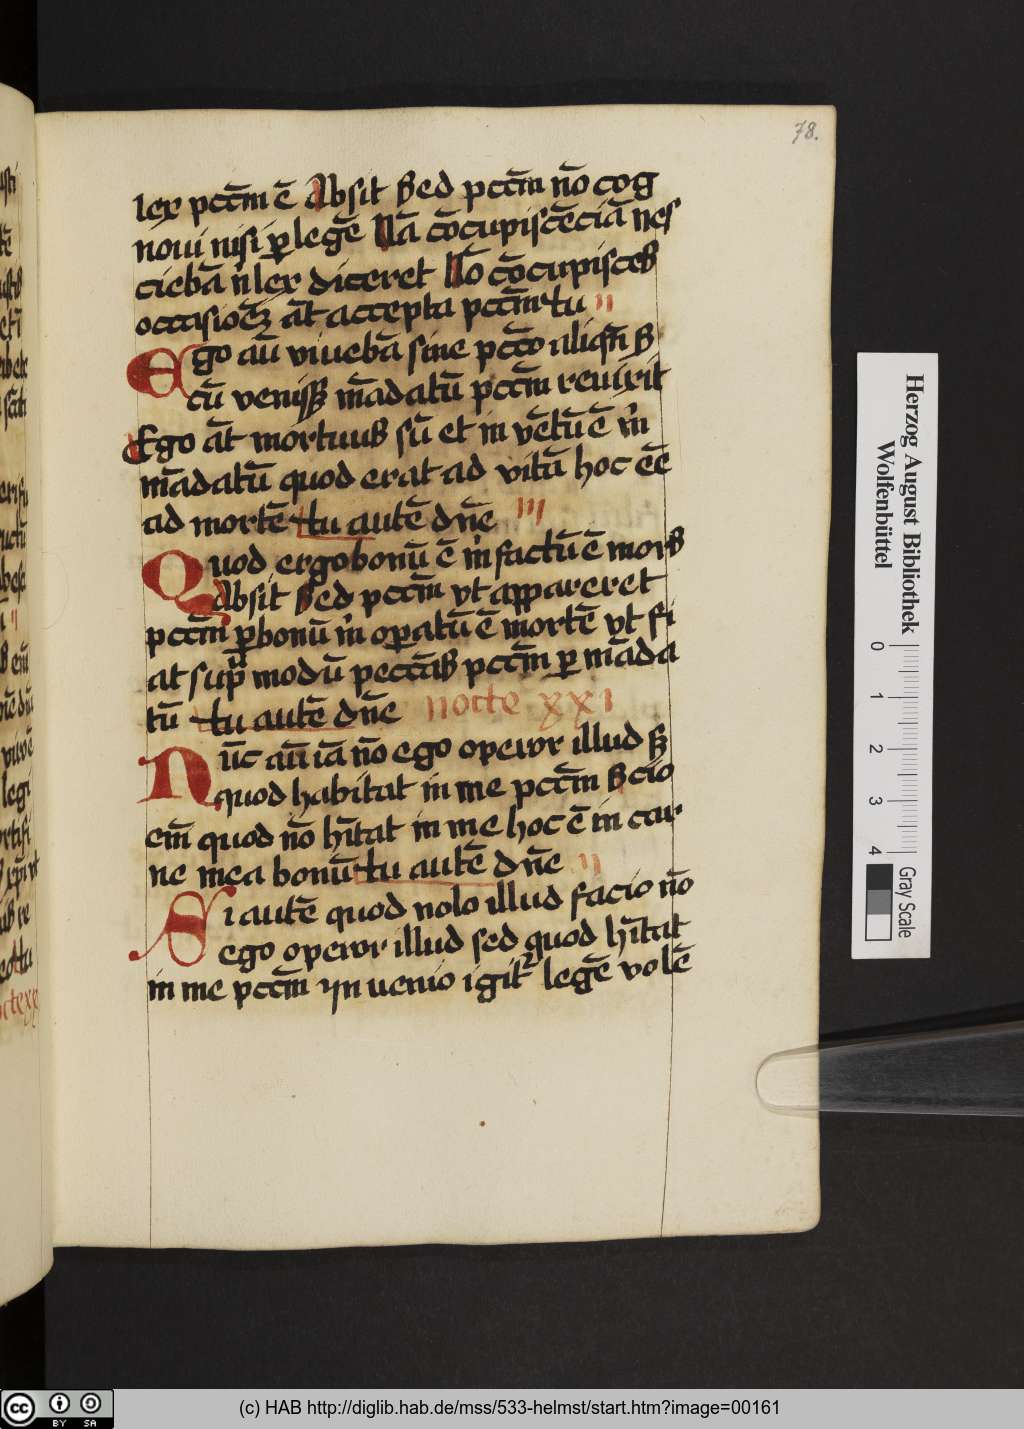 78.
lex pct̄m ē Absit Sed pct̄m nō cog
noui nisi ꝑ legē Nā cōcupiscēciā nes
ciebā n̄ lex diceret Nō cōcupisces
occasiōeʒ āt accepta pct̄m tu ii
Ego aū viuebā sine pct̄o aliqn̄ S
cū venissꝫ mādatū pct̄m reuixit
Ego āt mortuus sū et in vētū ē m̄
mādatū quod erat ad vitā hoc eē
ad mortē tu autē dn̄e iii
Quod ergo bonū ē m̄ factū ē mors
Absit Sed pct̄m vt appareret
pct̄m ꝑ bonū m̄ oꝑatū ē mortē vt fi
at sup̄ modū peccās pct̄m ꝑ māda
tū tu autē dn̄e nocte xxi
Nūc aū iā nō ego operor illud sꝫ
quod habitat in me pct̄m Scio
em̄ quod nō hītat in me hoc ē in car
ne mea bonū tu autē dn̄e ii
Si autē quod nolo illud facio nō
ego operor illud sed quod hītat
in me pct̄m Inuenio igit᷑ legē volē
Herzog August Bibliothek
Wolfenbüttel
0 1 2 3 4
Gray Scale
cc BY SA
(c) HAB http://diglib.hab.de/mss/533-helmst/start.htm?image=00161